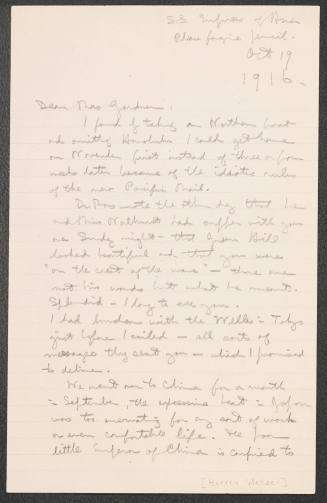 S.S. Empress of Asia
Please forgive pencil.
Oct 19
1916 -
Dear Mrs Gardner,
I found by taking a Northern boat
and omitting Honolulu I could get home
on November first instead of three or four
weeks later because of the idiotic rules
of the new Pacific Mail.
Dr Ross wrote the other day that he
and Miss had supper with you
one Sunday night - that Green Hill
looked beautiful and that you were
"on the crest of the wave" - those are
not his words but what he meant.
Splendid - I long to see you.
I had luncheon with the Wells in Tokyo
just before I sailed - all sorts of
messages they sent you - which I promised
to deliver.
We went over to China for a month
in September, the oppressive heat in Japan
was too enervating for any sort of work
or even comfortable life. The poor
little Emperor of China is confined to